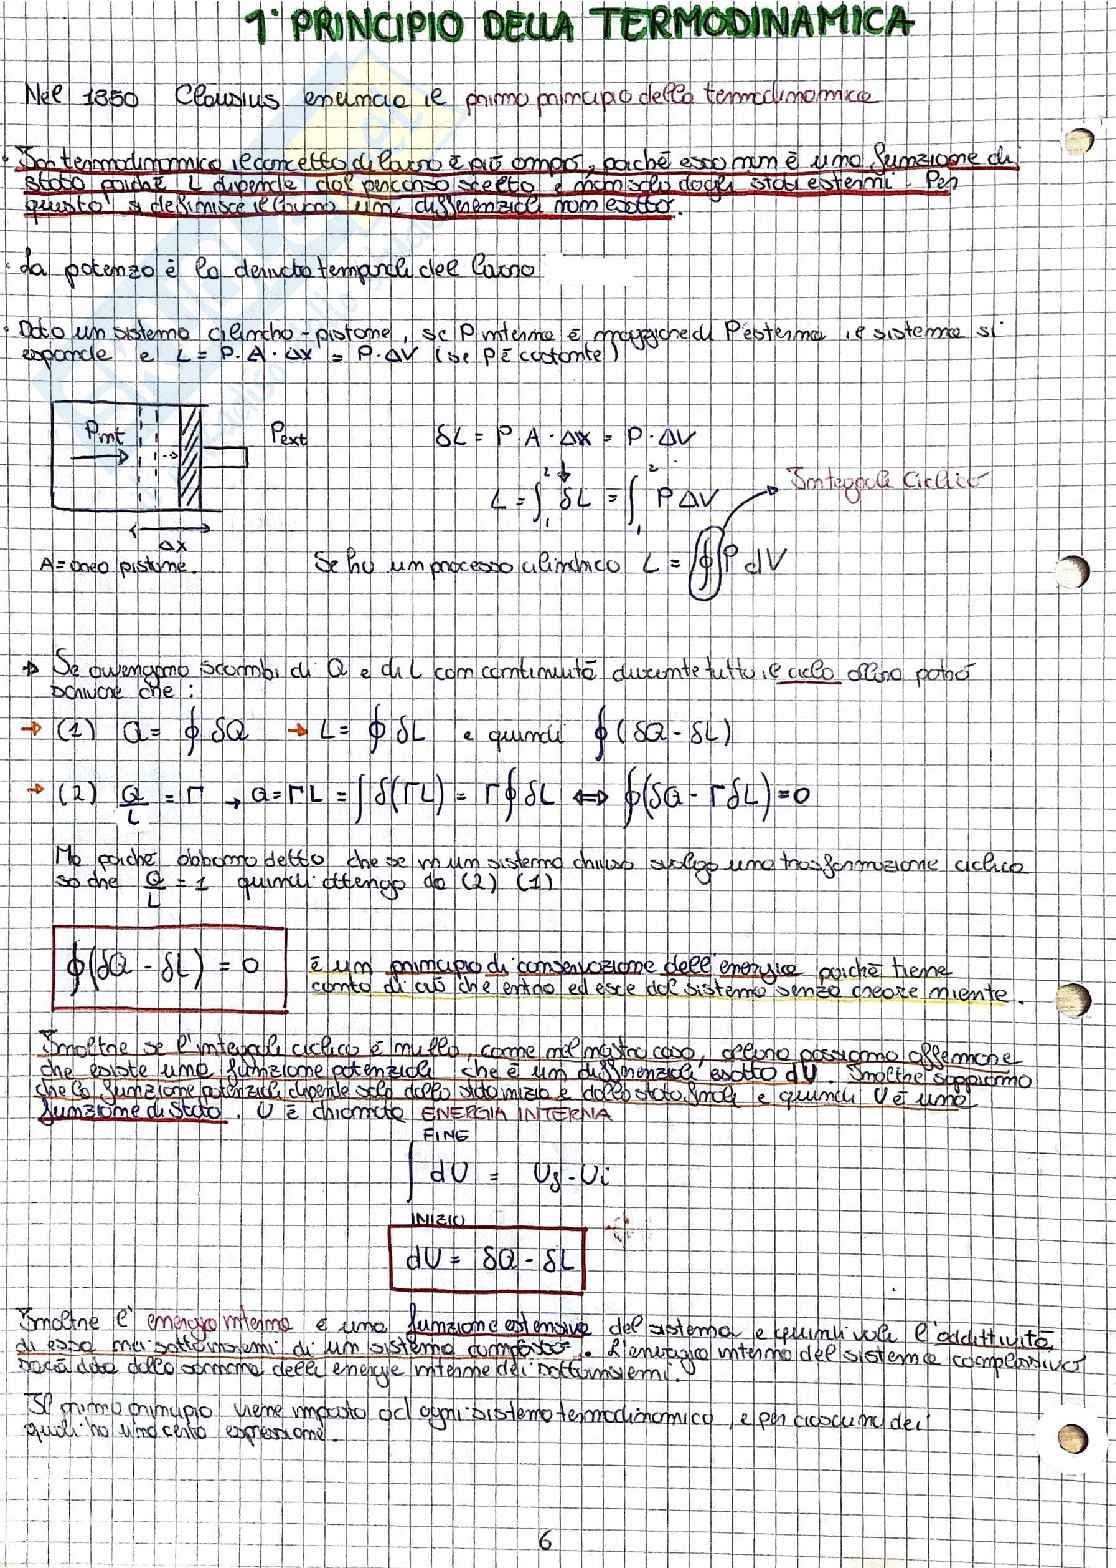 1° PRINCIPIO DELLA TERMODINAMICA
Nel 1850 Clausius enuncia il primo principio della termodinamica
• In termodinamica il concetto di lavoro è più ampio, poiché esso non è una funzione di
stato poiché L dipende dal percorso scelto e non solo dagli stati estremi. Per
questo si definisce il lavoro un differenziale non esatto.
• La potenza è la derivata temporale del lavoro
• Dato un sistema cilindro-pistone, se P interna è maggiore di P esterna il sistema si
espande e L = P. A. Δx = P. ΔV (se P è costante)
Pint
Pext
δL = P A · Δx = P · ΔV
L = ∫₁² δL = ∫₁² P ΔV
Integrale ciclico
Δx
A = area pistone.
Se ho un processo cilindrico L = ∮ P dV
→ Se avvengono scambi di Q e di L con continuità durante tutto il ciclo allora potrò
scrivere che :
→ (1) Q = ∮ δQ → L = ∮ δL e quindi ∮ (δQ - δL)
→ (2) Q/L = Γ → Q = ΓL = ∫ δ(ΓL) = Γ ∮ δL ⇔ ∮(δQ - ΓδL) = 0
Ma poiché abbiamo detto che se in un sistema chiuso svolgo una trasformazione ciclica
so che Q/L = 1 quindi ottengo da (2) (1)
∮(δQ - δL) = 0
è un principio di conservazione dell'energia poiché tiene
conto di ciò che entra ed esce dal sistema senza creare niente.
Inoltre se l'integrale ciclico è nullo, come nel nostro caso, allora possiamo affermare
che esiste una funzione potenziale che è un differenziale esatto dU. Inoltre sappiamo
che la funzione potenziale dipende solo dallo stato inizio e dallo stato finale e quindi U è una
funzione di stato. U è chiamata ENERGIA INTERNA
FINE
∫ dU = Uf - Ui
INIZIO
dU = δQ - δL
Inoltre l'energia interna è una funzione estensiva del sistema e quindi vale l'addittività
di essa nei sottosistemi di un sistema composto. L'energia interna del sistema complessivo
sarà data dalla somma delle energie interne dei sottosistemi.
Il primo principio viene imposto ad ogni sistema termodinamico, e per ciascuno dei
quali ho una certa espressione.
6